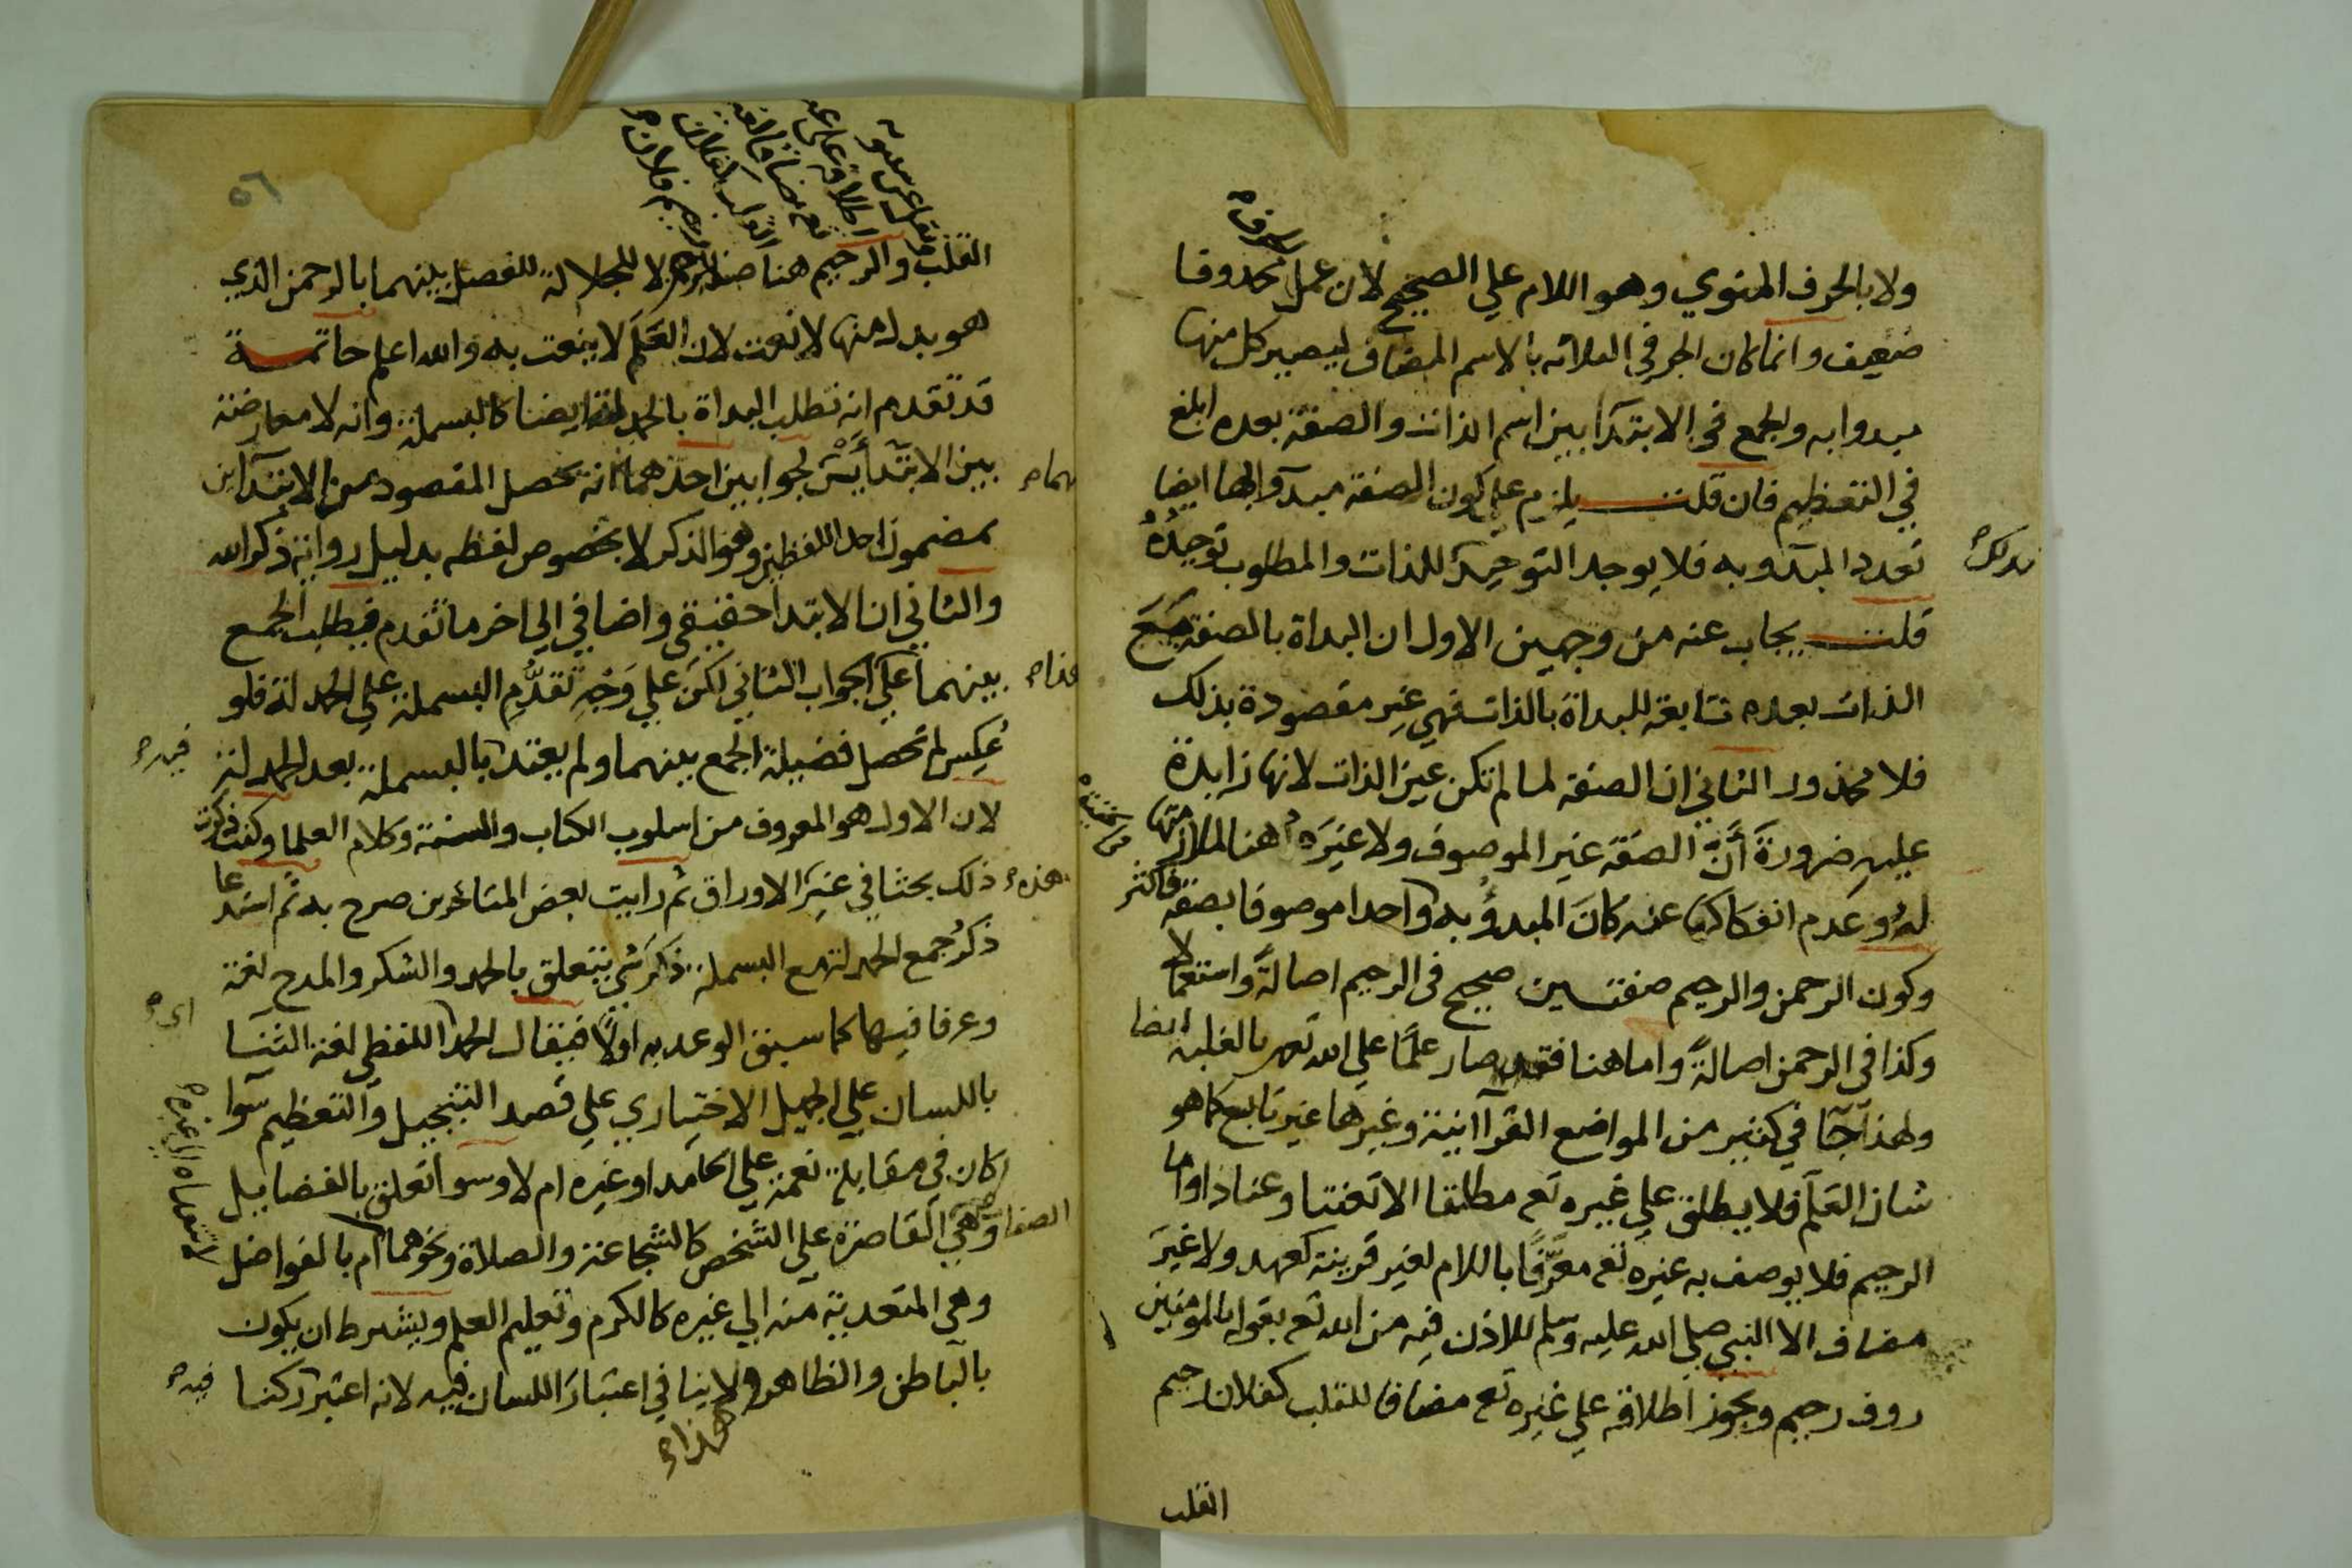 ولا بالحرف المنوي وهو اللام علي الصحيح لان عمل محذوفا
ضعيف وانما كان الجر في الثلاثه بالاسم المضاف ليصير كل منها
مبدوا به والجمع في الابتدآ بين اسم الذات والصفة بعده ابلغ
في التعظيم فان قلت يلزم علي كون الصفة مبدوأ بها ايضا
تعدد المبدو به فلا يوجد التوحيد للذات والمطلوب توحيده
قلت يجاب عنه من وجهين الاول ان البداة بالصفة مع
الذات بعده تابعة للبداة بالذات فهي غير مقصودة بذلك
فلا محذور الثاني ان الصفة لما لم تكن عين الذات لانها زايدة
عليه ضرورة أن الصفة غير الموصوف ولا غيره هنا لملازمتها
له وعدم انفكاكها عنه كان المبدؤ به واحدا موصوفا بصفة فاكثر
وكون الرحمن والرحيم صفتين صحيح في الرحيم اصالة واستعمالا
وكذا في الرحمن اصالة واما هنا فقد صار علما علي الله تعه بالغلبه ايضا
ولهذا جآ في كثير من المواضع القرآانية وغيرها غير تابع كما هو
شان العلم فلا يطلق علي غيره تع مطلقا الا تعنتا وعنادا واما
الرحيم فلا يوصف به غيره تع معرفا باللام لغير قرينة كعهد ولا غير
مضاف الا النبي صلي الله عليه وسلم للاذن فيه من الله تع بقوله بالمومنين
روف رحيم ويجوز اطلاقه علي غيره تع مضافا للقلب كفلان رحيم
القلب
٥٦
القلب والرحيم هنا صفة للرحمن لا للجلالة للفصل بينهما بالرحمن الذي
هو بدل منها لا نعت لان العلم لا ينعت به والله اعلم خاتمة
قد تقدم انه تطلب البداة بالحمدلة ايضا كالبسملة وانه لا معارضة
بين الابتدأين لجوابين احدهما انه يحصل المقصود من الابتدآين
بمضمون احد اللفظين وهو الذكر لا بخصوص لفظه بدليل رواية ذكر الله
والثاني ان الابتدا حقيقي واضافي الي اخر ما تقدم فيطلب الجمع
بينهما علي الجواب الثاني لكن علي وجه تقدم البسملة علي الحمدلة فلو
عكس لم تحصل فضيلة الجمع بينهما ولم يعتد بالبسملة بعد الحمدلة
لان الاول هو المعروف من اسلوب الكتاب والسنة وكلام العلما وكنت ذكرت
ذلك بحثا في غير هذه الاوراق ثم رايت بعض المتاخرين صرح به ثم استدعا
ذكر جمع الحمدلة مع البسملة ذكر شي يتعلق بالحمد والشكر والمدح لغة
وعرفا فيها كما سبق الوعد به اولا فيقال الحمد اللفظي لغة الثنا
باللسان علي الجميل الاختياري علي قصد التبجيل والتعظيم سوا
كان في مقابلة نعمة علي الحامد او غيره ام لا وسوا تعلق بالفضايل
وهي الصفات القاصرة علي الشخص كالشجاعة والصلاة ونحوهما ام بالفواضل
وهي المتعدية منه الي غيره كالكرم وتعليم العلم ويشرط ان يكون
بالباطن والظاهر ولا ينافي هذا اعتبار اللسان فيه لانه اعتبر ركنا